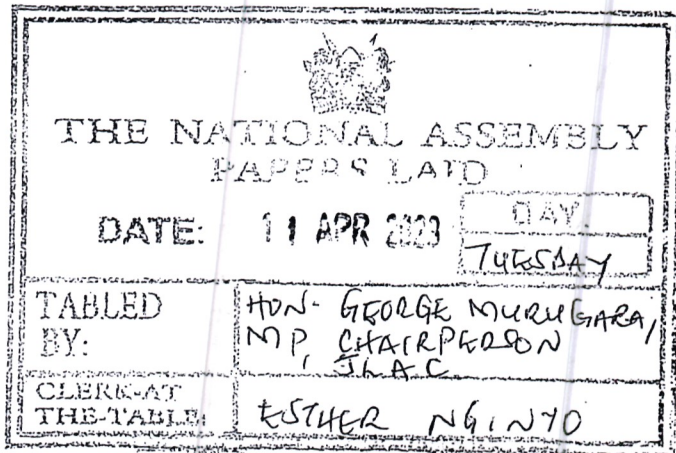 THE NATIONAL ASSEMBLY
PAPERS LAID
DATE: 11 APR 2023
DAY
TUESDAY
TABLED BY:
HON- GEORGE MURUGARA,
MP, CHAIRPERSON
JLAC
CLERK-AT
THE-TABLE:
ESTHER NGINYO